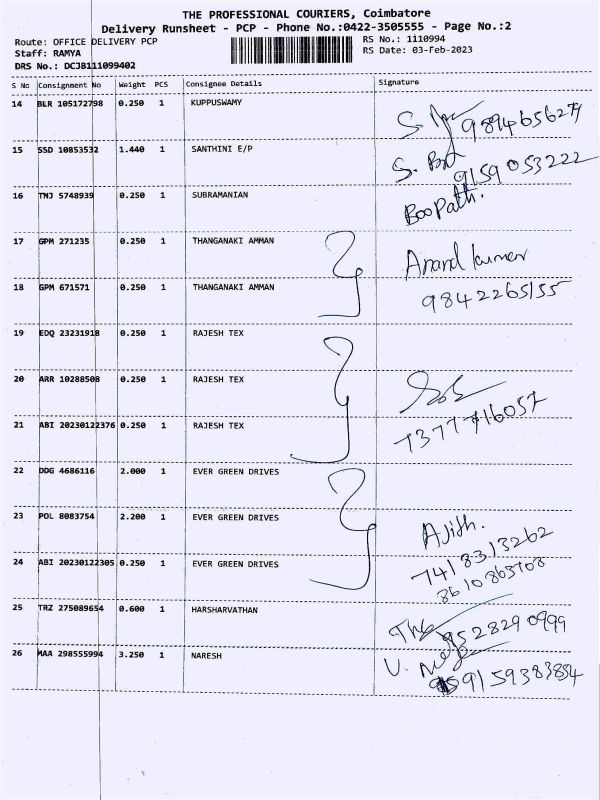 THE PROFESSIONAL COURIERS, Coimbatore
Delivery Runsheet - PCP - Phone No.:0422-3505555 - Page No.:2
Route: OFFICE DELIVERY PCP
RS No.: 1110994
Staff: RAMYA
RS Date: 03-Feb-2023
DRS No.: DCJB111099402
S No Consignment No Weight PCS Consignee Details Signature
14 BLR 105172798 0.250 1 KUPPUSWAMY
9894656279
15 SSD 10853532 1.440 1 SANTHINI E/P
S. 9159053222
16 TNJ 5748939 0.250 1 SUBRAMANIAN
BooPathi.
17 GPM 271235 0.250 1 THANGANAKI AMMAN
Anand kumar
18 GPM 671571 0.250 1 THANGANAKI AMMAN
9842265155
19 EDQ 23231918 0.250 1 RAJESH TEX
20 ARR 10288508 0.250 1 RAJESH TEX
21 ABI 20230122376 0.250 1 RAJESH TEX
7377716057
22 DDG 4686116 2.000 1 EVER GREEN DRIVES
23 POL 8083754 2.200 1 EVER GREEN DRIVES
Ajith.
7418313262
24 ABI 20230122305 0.250 1 EVER GREEN DRIVES
8610863708
25 TRZ 275089654 0.600 1 HARSHARVATHAN
9528290999
26 MAA 298555994 3.250 1 NARESH
9159383854